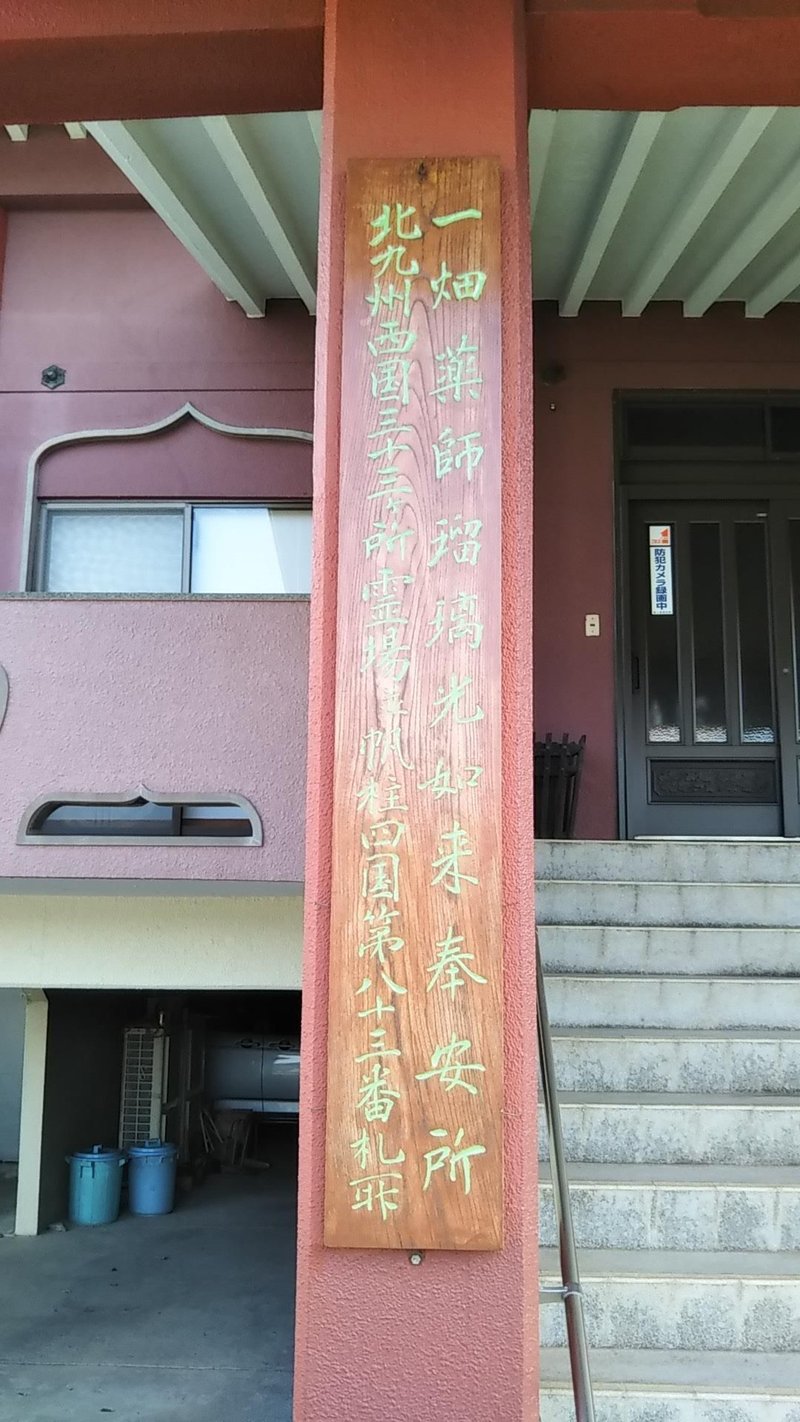 一畑薬師瑠璃光如来奉安所
北九州西国三十三ヶ所霊場
帆柱四国第八十三番札所
防犯カメラ録画中